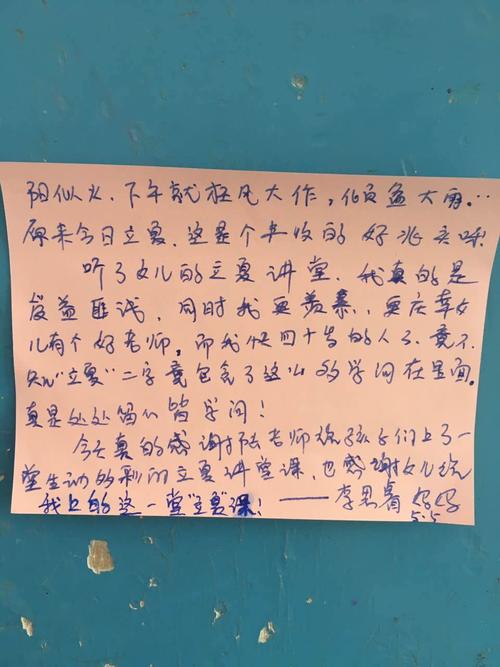 阳似火、下午就狂风大作,倾盆大雨…
原来今日立夏.这是个丰收的好兆头呀.
听了女儿的立夏讲堂.我真的是
受益匪浅,同时我更羡慕,更庆幸女
儿有个好老师,而我快四十岁的人了.竟不
知"立夏"二字竟包含了这么多的学问在里面.
真是处处留心皆学问!
今天真的感谢陆老师给孩子们上了一
堂生动多彩的立夏讲堂课.也感谢女儿给
我上的这一堂"立夏"课.——李思 妈妈
5.5